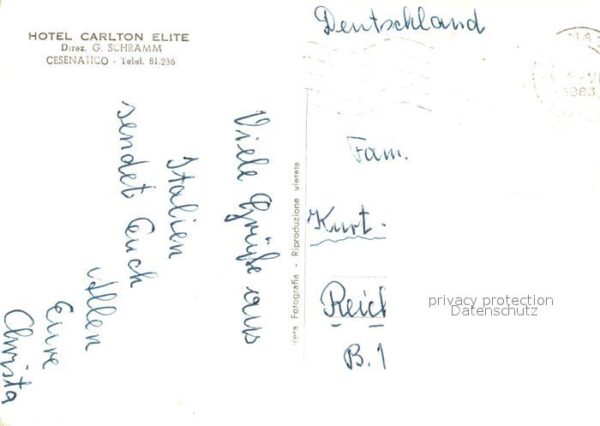 HOTEL CARLTON ELITE
Direz. G. SCHRAMM
CESENATICO - Telef. 81.236
Viele Grüße aus
Italien
sendet Euch
Allen
Eure
Christa
Vera Fotografia - Riproduzione vietata
Deutschland
1963
Fam.
Kurt.
Reich
B. 1
privacy protection
Datenschutz